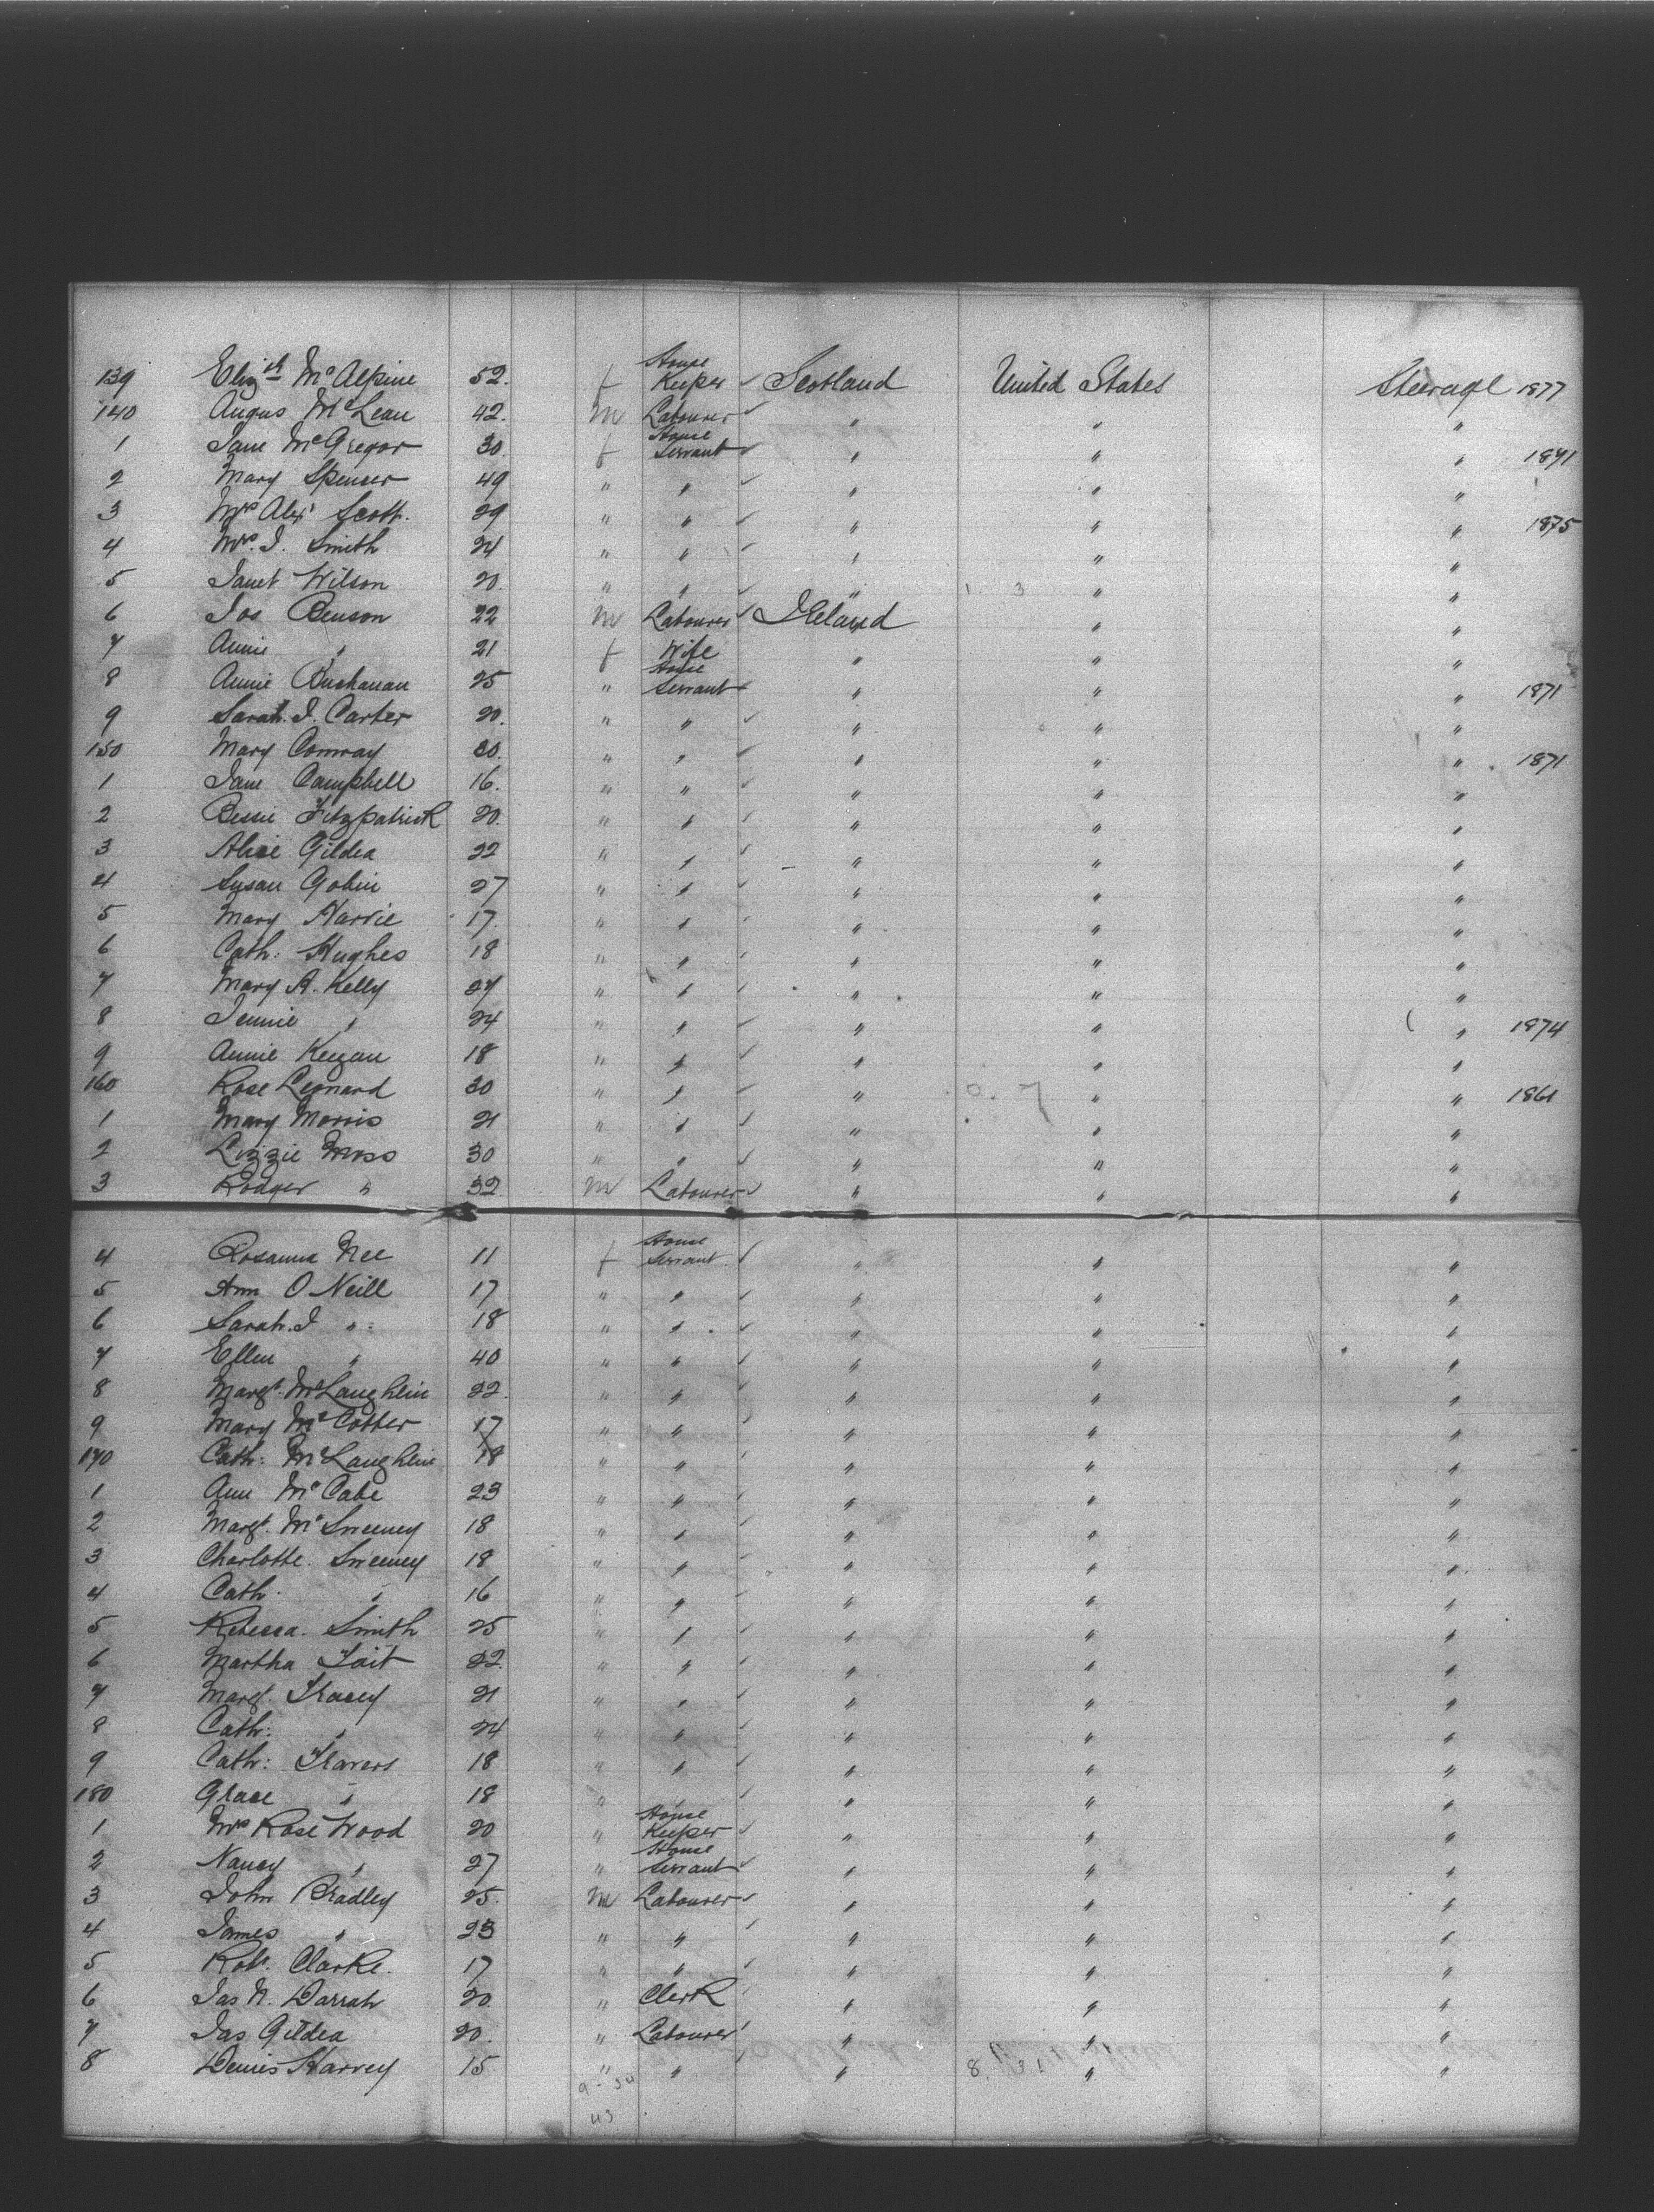 139 Eliz'th McAlpine 52. f House Keeper ✓ Scotland United States Steerage 1877
140 Angus McLean 42. m Labourer ✓ " " "
1 Jane McGregor 30. f House Servant ✓ " " " 1871
2 Mary Spencer 49 " " ✓ " " "
3 Mrs Alex' Scott. 29 " " ✓ " " " 1875
4 Mrs. J. Smith 24 " " ✓ " " "
5 Janet Wilson 20. " " ✓ " " "
6 Jos Benson 22 m Labourer ✓ Ireland " "
7 Annie " 21 f Wife " " "
8 Annie Buchanan 25 " House Servant ✓ " " " 1871
9 Sarah. J. Carter 20. " " ✓ " " "
150 Mary Conway 30. " " ✓ " " " 1871
1 Jane Campbell 16. " " ✓ " " "
2 Bessie Fitzpatrick 20. " " ✓ " " "
3 Alice Gildea 22 " " ✓ " " "
4 Susan Gobin 27 " " ✓ " " "
5 Mary Harvie 17. " " ✓ " " "
6 Cath: Hughes 18 " " ✓ " " "
7 Mary A. Kelly 27 " " ✓ " " "
8 Jennie " 24 " " ✓ " " " 1874
9 Annie Keegan 18 " " ✓ " " "
160 Rose Leonard 30 " " ✓ " " " 1861
1 Mary Morris 21 " " ✓ " " "
2 Lizzie Moss 30 " " ✓ " " "
3 Rodger " 32 m Labourer ✓ " " "
4 Rosanna Nee 11 f House Servant ✓ " " "
5 Ann O Neill 17 " " ✓ " " "
6 Sarah. J " 18 " " ✓ " " "
7 Ellen " 40 " " ✓ " " "
8 Margt. McLaughlin 22. " " ✓ " " "
9 Mary McCotter 17 " " ✓ " " "
170 Cath: McLaughlin 18 " " ✓ " " "
1 Ann McCabe 23 " " ✓ " " "
2 Margt. McSweeney 18 " " ✓ " " "
3 Charlotte. Sweeney 18 " " ✓ " " "
4 Cath. " 16 " " ✓ " " "
5 Rebecca. Smith 25 " " ✓ " " "
6 Martha Tait 22. " " ✓ " " "
7 Margt. Tracey 21 " " ✓ " " "
8 Cath: " 24 " " ✓ " " "
9 Cath: Travers 18 " " ✓ " " "
180 Grace " 18 " " ✓ " " "
1 Mrs Rose Wood 20 " House Keeper ✓ " " "
2 Nancy " 27 " House Servant ✓ " " "
3 John Bradley 25. m Labourer ✓ " " "
4 James " 23 " " ✓ " " "
5 Robt. Clarke. 17 " " ✓ " " "
6 Jas N. Darrah 20. " Clerk ✓ " " "
7 Jas Gildea 20. " Labourer ✓ " " "
8 Denis Harvey 15 " " ✓ " " "
9 - 34
43